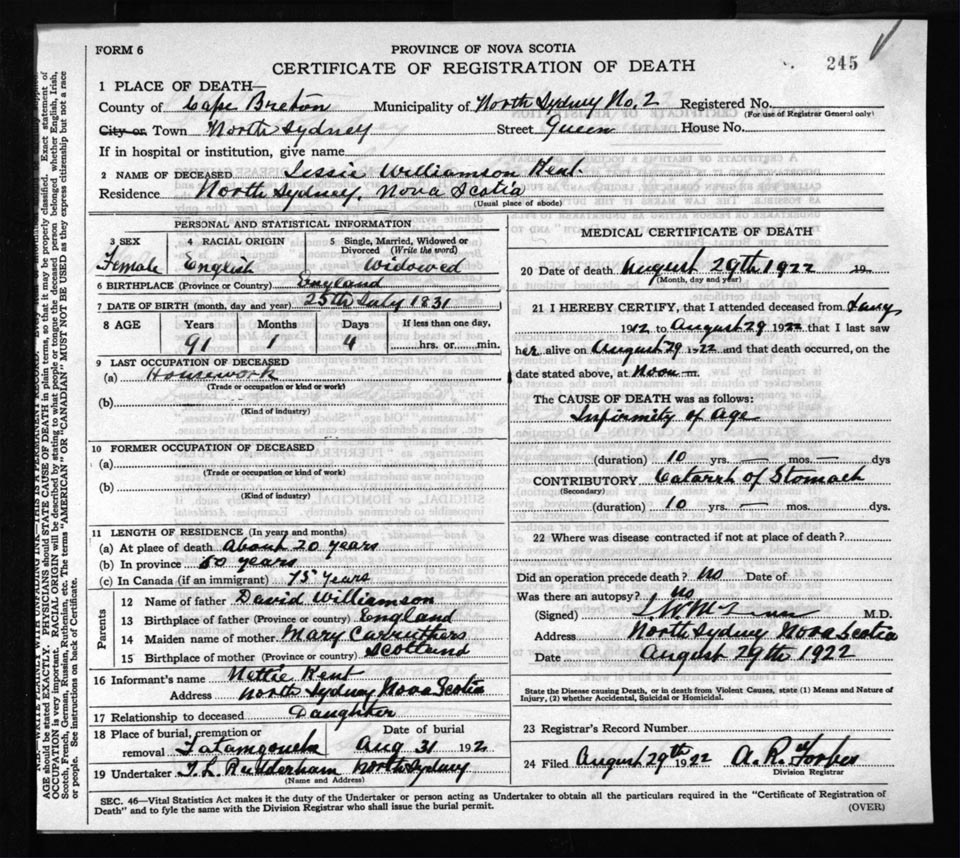 FORM 6
PROVINCE OF NOVA SCOTIA
CERTIFICATE OF REGISTRATION OF DEATH
245
1 PLACE OF DEATH—
County of Cape Breton Municipality of North Sydney No. 2 Registered No.
(For use of Registrar General only)
City or Town North Sydney Street Queen House No.
If in hospital or institution, give name
2 NAME OF DECEASED Jessie Williamson Kent
Residence North Sydney, Nova Scotia
(Usual place of abode)
PERSONAL AND STATISTICAL INFORMATION
3 SEX 4 RACIAL ORIGIN 5 Single, Married, Widowed or Divorced (Write the word)
Female English Widowed
6 BIRTHPLACE (Province or Country) England
7 DATE OF BIRTH (month, day and year) 25th July 1831
8 AGE Years Months Days If less than one day,
91 1 4 hrs. or min.
9 LAST OCCUPATION OF DECEASED
(a) Housework
(Trade or occupation or kind or work)
(b) —
(Kind of industry)
10 FORMER OCCUPATION OF DECEASED
(a)
(Trade or occupation or kind of work)
(b)
(Kind of industry)
11 LENGTH OF RESIDENCE (In years and months)
(a) At place of death About 20 years
(b) In province 50 years
(c) In Canada (if an immigrant) 75 years
Parents
12 Name of father David Williamson
13 Birthplace of father (Province or country) England
14 Maiden name of mother Mary Carruthers
15 Birthplace of mother (Province or country) Scotland
16 Informant's name Nettie Kent
Address North Sydney Nova Scotia
17 Relationship to deceased Daughter
18 Place of burial, cremation or removal Tatamgouche Date of burial Aug 31 1922
19 Undertaker T. L. Rudderham North Sydney
(Name and Address)
MEDICAL CERTIFICATE OF DEATH
20 Date of death August 29th 1922 19
(Month, day and year)
21 I HEREBY CERTIFY, that I attended deceased from
1912 to August 29 1922 that I last saw
her alive on August 29 1922 and that death occurred, on the
date stated above, at Noon m.
The CAUSE OF DEATH was as follows:
Infirmity of Age
(duration) 10 yrs. — mos. — dys
CONTRIBUTORY Catarrh of Stomach
(Secondary)
(duration) 10 yrs. — mos. dys.
22 Where was disease contracted if not at place of death?
Did an operation precede death? No Date of
Was there an autopsy? No
(Signed) M.D.
Address North Sydney Nova Scotia
Date August 29th 1922
State the Disease causing Death, or in death from Violent Causes, state (1) Means and Nature of
Injury, (2) whether Accidental, Suicidal or Homicidal.
23 Registrar's Record Number
24 Filed August 29th 1922 A. R. Forbes
Division Registrar
SEC. 46—Vital Statistics Act makes it the duty of the Undertaker or person acting as Undertaker to obtain all the particulars required in the "Certificate of Registration of
Death" and to fyle the same with the Division Registrar who shall issue the burial permit.
(OVER)
N.B.—WRITE PLAINLY WITH UNFADING INK—THIS IS A PERMANENT RECORD.
AGE should be stated EXACTLY. PHYSICIANS should STATE CAUSE OF DEATH in plain terms, so that it may be properly classified. Exact statement of
OCCUPATION is very important. RACIAL ORIGIN will be described by stating to what people or tongue the deceased person belonged whether English, Irish,
Scotch, French, German, Russian, Ruthenian, etc. The terms "AMERICAN" OR "CANADIAN" MUST NOT BE USED as they express citizenship but not a race
or people. See instructions on back of Certificate.